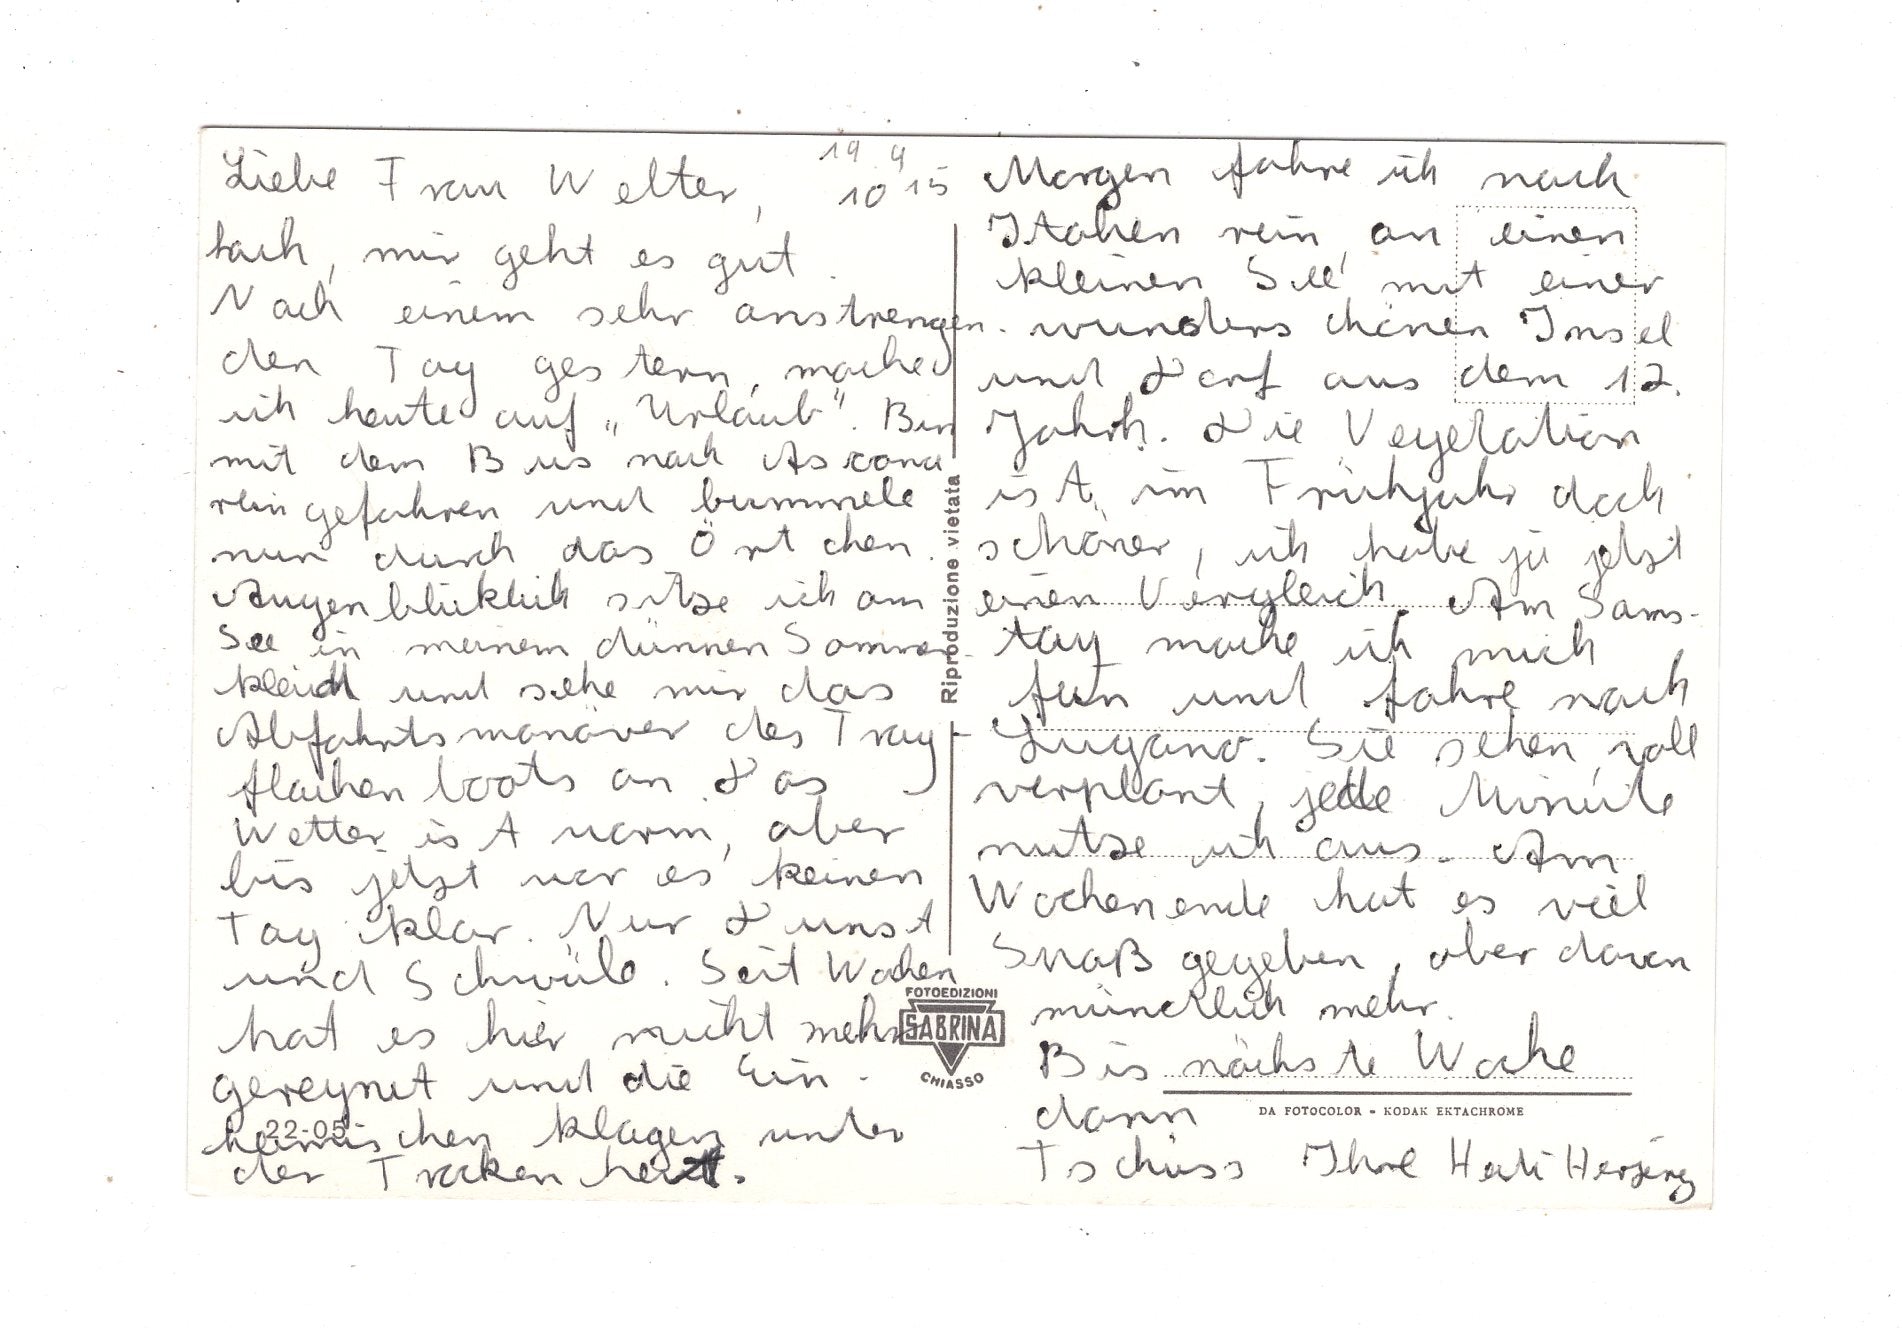 19.9
10 15
Liebe Frau Welter,
hach, mir geht es gut.
Nach einem sehr anstrengen-
den Tag gestern, mache
ich heute auf „Urlaub“. Bin
mit dem Bus nach Ascona
reingefahren und bummele
nun durch das Örtchen.
Augenblicklich sitze ich am
See in meinem dünnen Sommer-
kleidt und sehe mir das
Abfahrtsmanöver des Trag-
flächenboots an. Das
Wetter ist warm, aber
bis jetzt war es keinen
Tag klar. Nur Dunst
und Schwüle. Seit Wochen
hat es hier nicht mehr
geregnet und die Ein-
heimischen klagen unter
der Trockenheit.
22-05
Riproduzione vietata
FOTOEDIZIONI
SABRINA
CHIASSO
Morgen fahre ich nach
Italien rein, an einen
kleinen See mit einer
wunderschönen Insel
und Dorf aus dem 12.
Jahrh. Die Vegetation
ist im Frühjahr doch
schöner, ich habe ja jetzt
einen Vergleich. Am Sams-
tag mache ich mich
fein und fahre nach
Lugano. Sie sehen voll
verplant, jede Minute
nutze ich aus. Am
Wochenende hat es viel
Spaß gegeben, aber davon
mündlich mehr.
Bis nächste Woche
dann
Tschüss Ihre
DA FOTOCOLOR - KODAK EKTACHROME